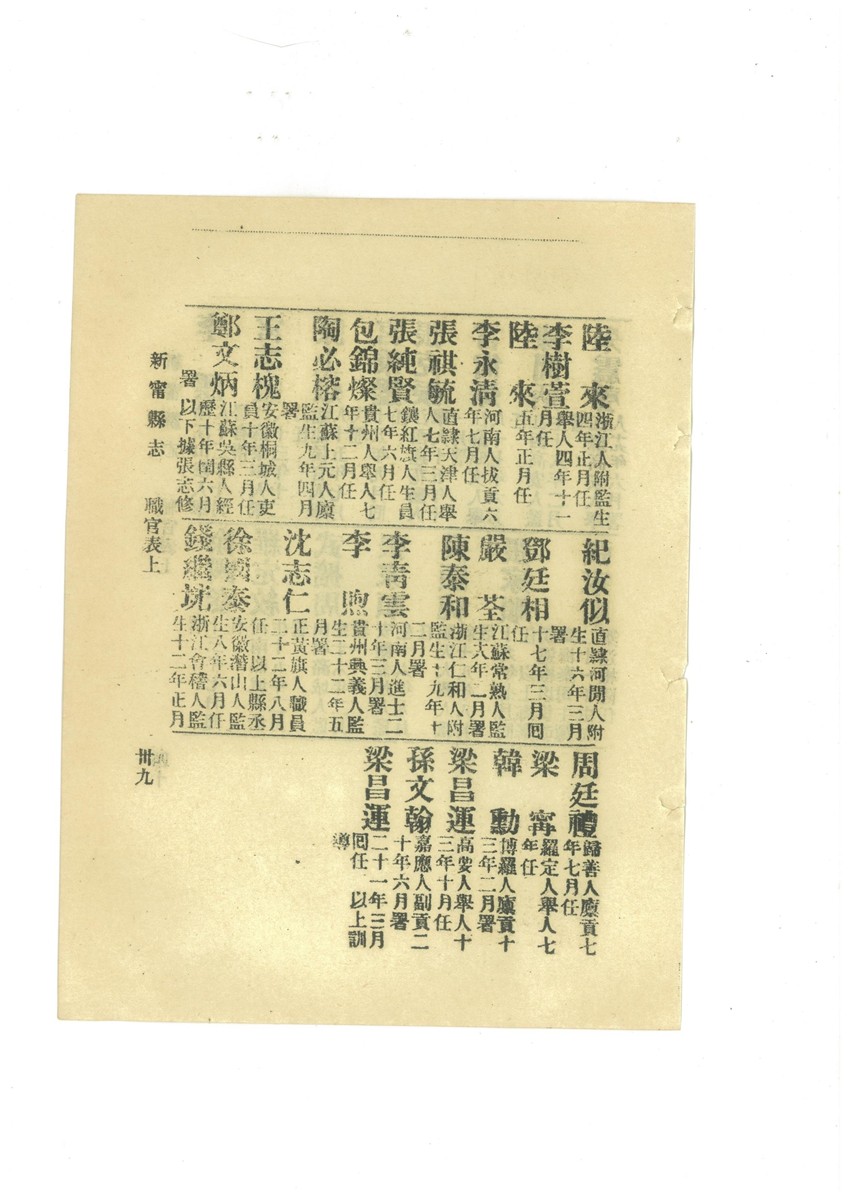 陸來浙江人附監生
四年正月任
李樹萱舉人四年十一
月任
陸來五年正月任
李永清河南人拔貢六
年七月任
張祺毓直隸天津人舉
人七年三月任
張純賢鑲紅旗人生員
七年六月任
包錦燦貴州人舉人七
年十二月任
陶必榕江蘇上元人廩
監生九年四月
署
王志槐安徽桐城人吏
員十年三月任
鄭文炳江蘇吳縣人經
歷十年閏六月
署 以下據張志修
紀汝似直隸河間人附
生十六年三月
署
鄧廷相十七年三月囘
任
嚴荃江蘇常熟人監
生十八年二月署
陳泰和浙江仁和人附
監生十九年十
二月署
李靑雲河南人進士二
十年三月署
李煦貴州興義人監
生二十二年五
月署
沈志仁正黃旗人職員
二十二年八月
任 以上縣丞
徐國泰安徽潛山人監
生八年六月任
錢繼 浙江會稽人監
生十二年正月
周廷禮歸善人廩貢七
年七月任
梁寗羅定人舉人七
年任
韓勳博羅人廩貢十
三年二月署
梁昌運高要人舉人十
三年十月任
孫文翰嘉應人副貢二
十年六月署
梁昌運二十一年三月
囘任 以上訓
導
新甯縣志 職官表上 卅九